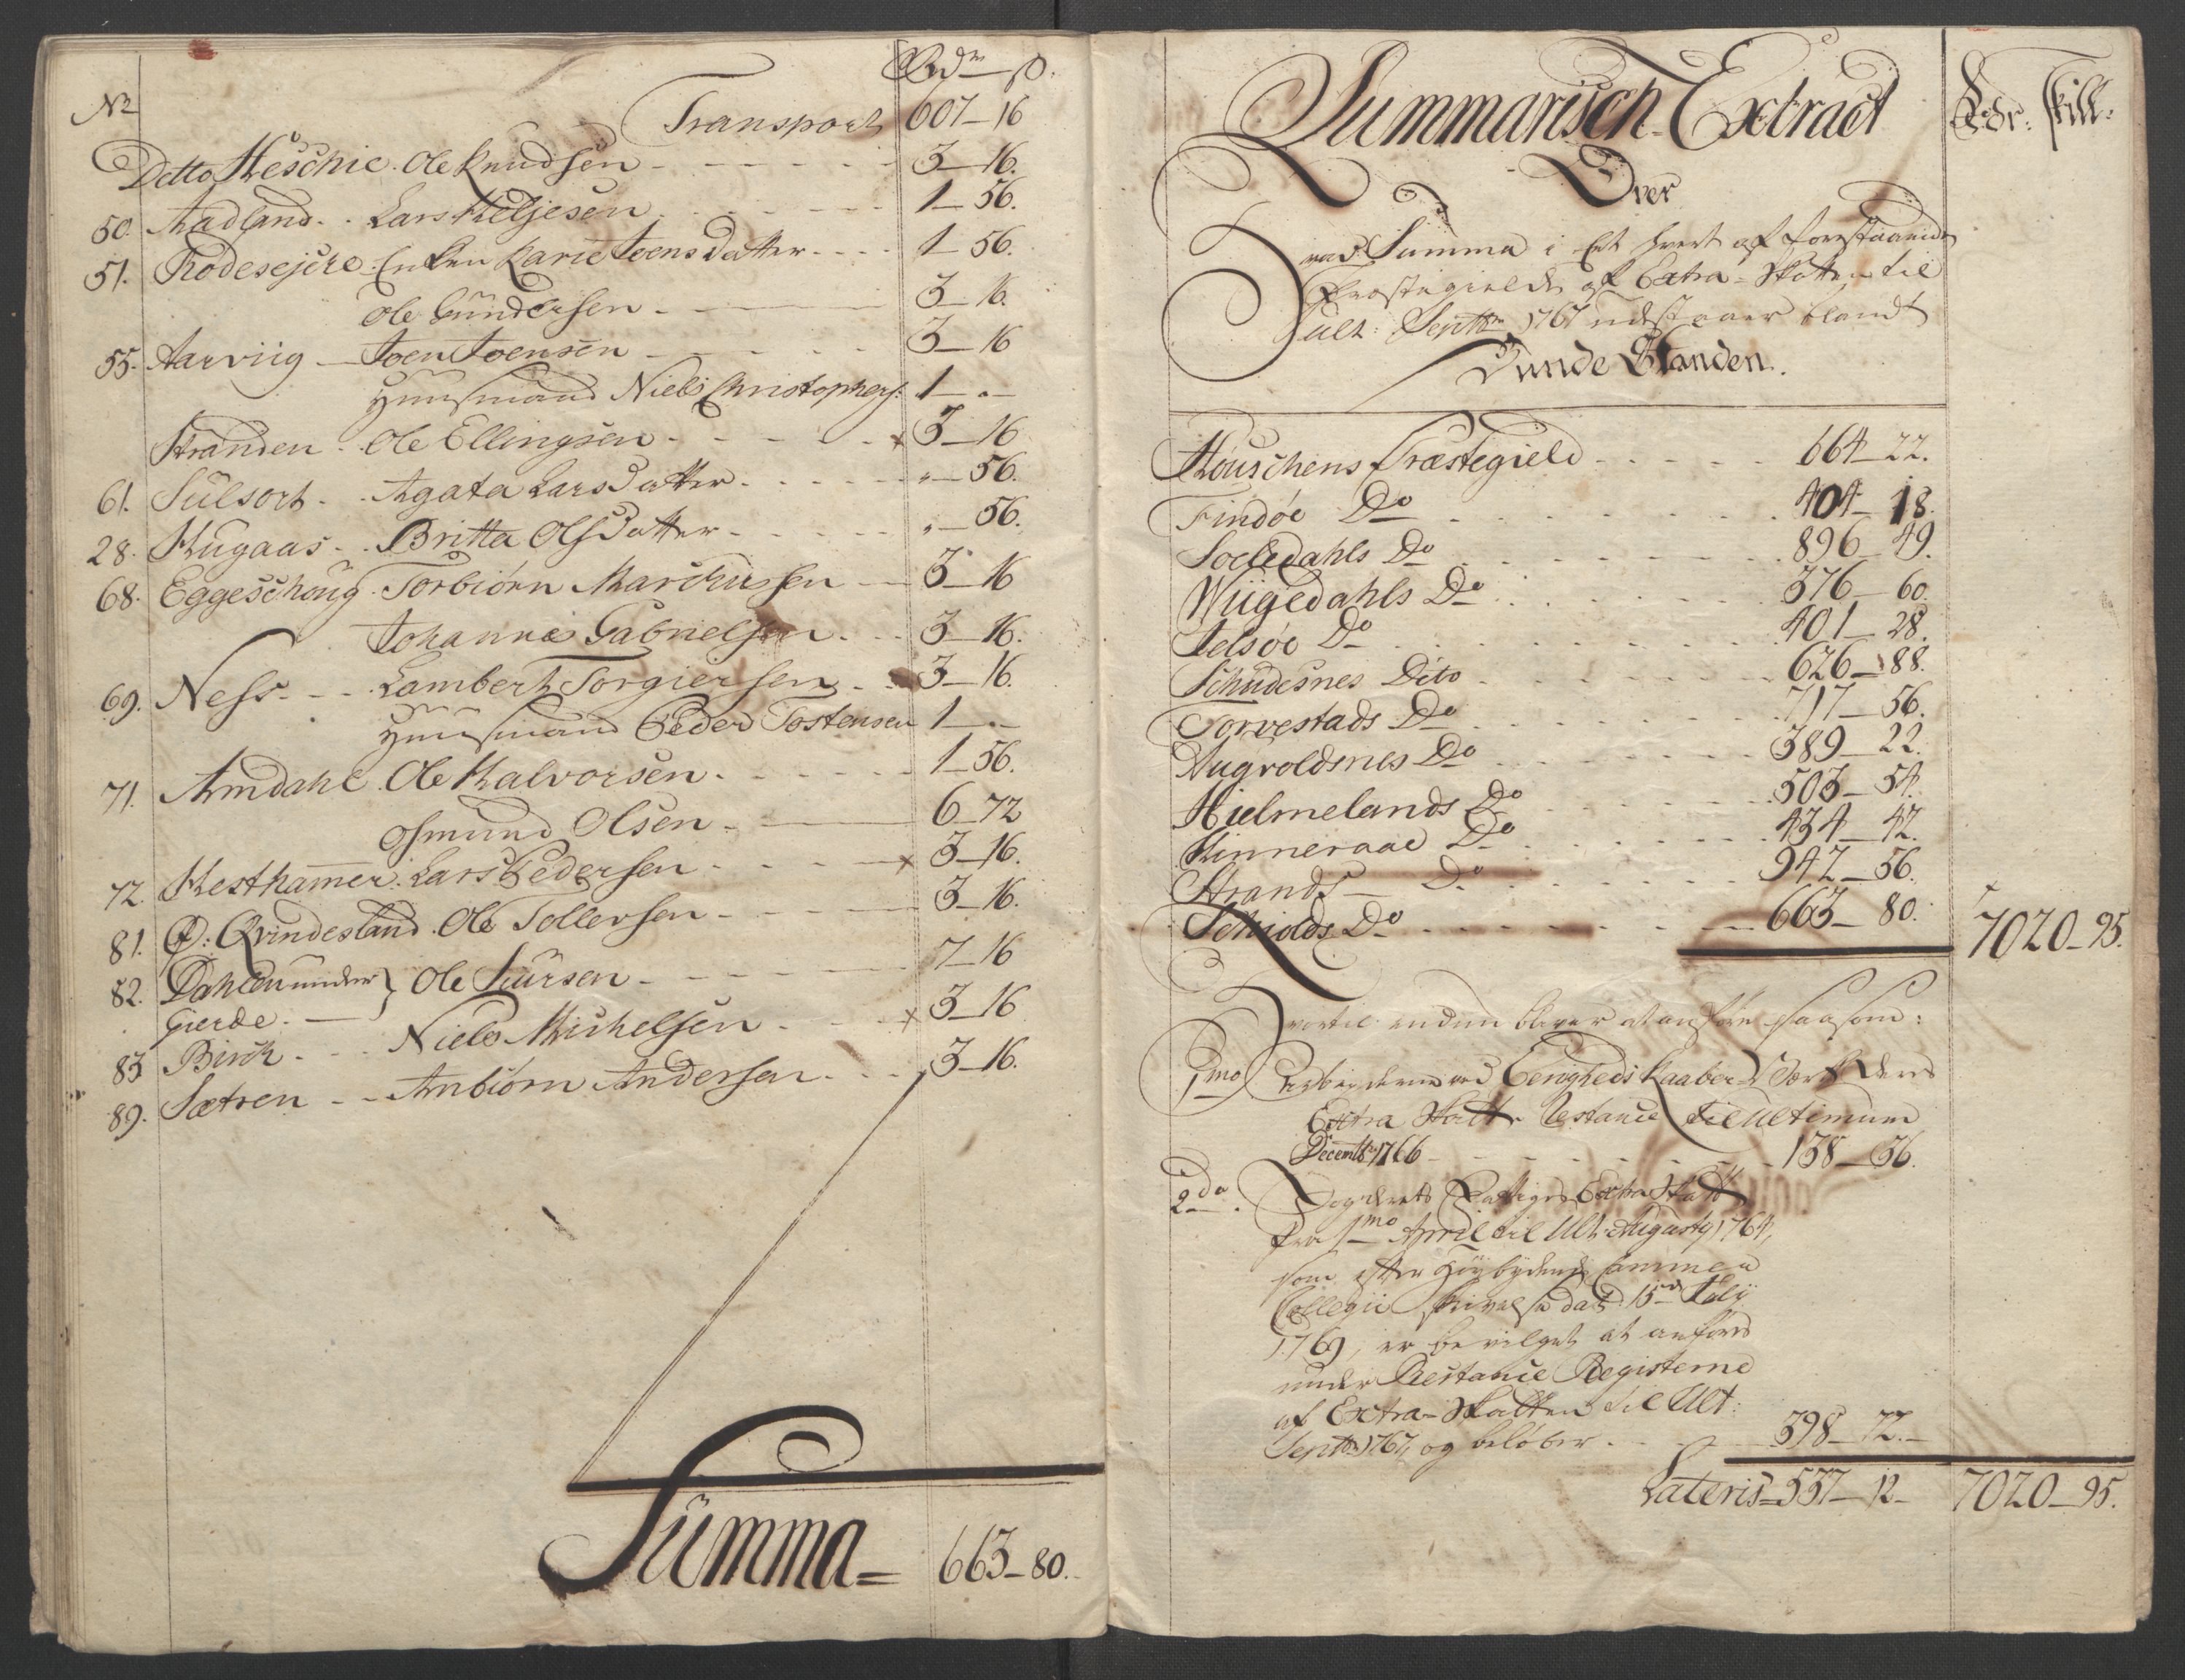 No
Rdr ß.
Transport 607-16
Detto Heschie. Ole Knudsen - 3-16.
50. Aadland. Lars Keljesen 1-56.
51. Rodesejere. Enken Karie Joens Datter - 1-56.
Ole Gundersen - 3-16.
55. Aarviig - Joen Joensen - 3-16
Huusmand Niels Christophers: 1 - " -
Stranden. Ole Ellingsen - x 3-16
61. Sulsort. Agata Lars Datter - " - 56.
28. Hugaas. Britta Ols Datter - " - 56.
68. Eggeschoug. Torbiørn Marckussen - 3-16
Johannes Gabrielsen - 3-16.
69. Ness - Lambert Torgiersen - 3-16.
Huusmand Peder Tostensen 1 - " -
71. Amdahl. Ole Halvorsen - 1-56.
Osmund Olsen - 6-72
72. Hesthammer. Lars Pedersen - x 3-16.
81. Ø: Qvindesland. Ole Tollersen - 3-16.
82. Dahlen under } Ole Siursen - 7-16
Gierde. -
83 Birch - Niels Michelsen - x 3-16
89. Sætren - Anbiørn Andersen - 3-16.
Summa = 663-80.
Summarisch-Extract
Rdr: skill:
Over
hvad Summa i Eet hvert af forestaaende
Præstegield af Extra-Skatten til
ult: Septbr 1767 udestaaer blandt
Bunde Standen.
Houschens Præstegield - 664-22.
Findøe Do - 404-18.
Soeledahls Do - 896-49.
Wiigedahls Do - 376-60.
Jelsøe Do - 401-28.
Schudesnes Dito - 626-88.
Torvestads Do - 717-56.
Augvoldsnes Do - 389-22.
Hielmelands Do - 503-54.
Hinneraae Do - 434-42.
Strands - Do - 942-56.
Schiolds Do - 663-80. 7020-95.
hvortil endnu bliver at anføre saasom:
1mo Arbeiderne ved Eenigheds Kaaber Værk deres
Extra Skatte Restance til Ultimum
Decembr 1766 - 138-36.
2do. Fogderets Fattiges Extra Skatt
fra 1mo April til Ult: Augusty 1764,
som efter Høybydende Cammer
Collegii Skrivelse dat: 15de July
1769, er bevilget at anføres
under Restance Registerne
af Extra-Skatten til Ult:
Septbr 1767, og beløber - 398-72.-
Lateris = 537-12- 7020-95.